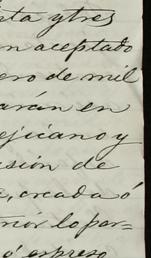 nta y tres
on aceptado
ero de mil
arán en
ejicano y
sión de
, creada ó
terior lo por=
ó expreso